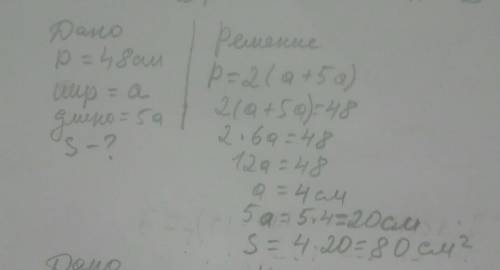 Дано
P = 48 см
шир = a
длино = 5a
S - ?
Решение
P = 2(a + 5a)
2(a + 5a) = 48
2 · 6a = 48
12a = 48
a = 4 см
5a = 5 · 4 = 20 см
S = 4 · 20 = 80 см²
Дано